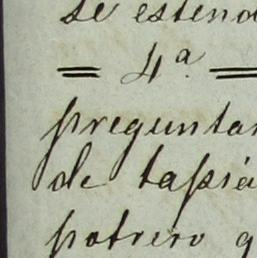 se estend
= 4ª =
preguntar
de tapia
potrero q